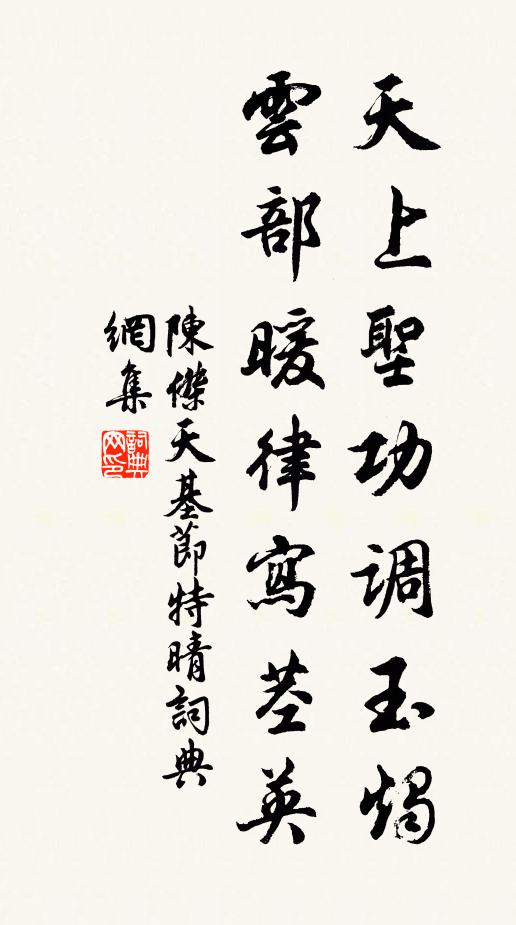 天上聖功調玉燭
雲部暖律寫茎英
陳傑天基節特晴詞典
網集
詞典
网印